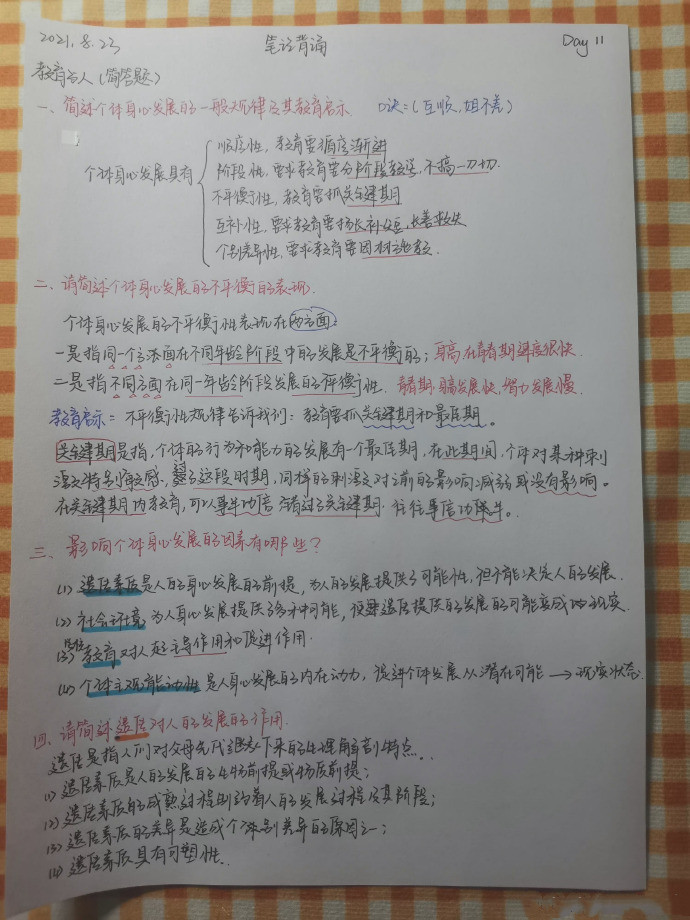 2021.8.23 笔记背诵 Day 11
教育名人(简答题)
一、简述个体身心发展的一般规律及其教育启示. 口诀:(互顺,姐不差)
个体身心发展具有
顺序性,教育要循序渐进
阶段性,要求教育要分阶段教学,不搞一刀切.
不平衡性,教育要抓关键期
互补性,要求教育要扬长补短,长善救失
个别差异性,要求教育要因材施教.
二、请简述个体身心发展的不平衡的表现.
个体身心发展的不平衡性表现在两方面:
一是指同一个方面在不同年龄阶段中的发展是不平衡的;身高在青春期速度很快.
二是指不同方面在同一年龄阶段发展的不平衡性. 青春期,身高发展快,智力发展慢.
教育启示:不平衡性规律告诉我们:教育要抓关键期和最佳期。
关键期是指,个体的行为和能力的发展有一个最佳期,在此期间,个体对某种刺
激特别敏感,过了这段时期,同样的刺激对之前的影响减弱或没有影响。
在关键期内教育,可以事半功倍 错过了关键期.往往事倍功半。
三、影响个体身心发展的因素有哪些?
(1) 遗传素质是人的身心发展的前提,为人的发展提供了可能性,但不能决定人的发展.
(2) 社会环境为人身心发展提供了多种可能,使遗传提供的发展的可能变成为现实.
(3) 学校教育对人起主导作用和促进作用.
(4) 个体主观能动性是人身心发展的内在动力,促进个体发展从潜在可能→现实状态.
四、请简述遗传对人的发展的作用.
遗传是指人们对父母先代继承下来的生理解剖特点.
(1) 遗传素质是人的发展的生物前提或物质前提;
(2) 遗传素质的成熟过程制约着人的发展过程及其阶段;
(3) 遗传素质的差异是造成个体间差异的原因之一;
(4) 遗传素质具有可塑性.